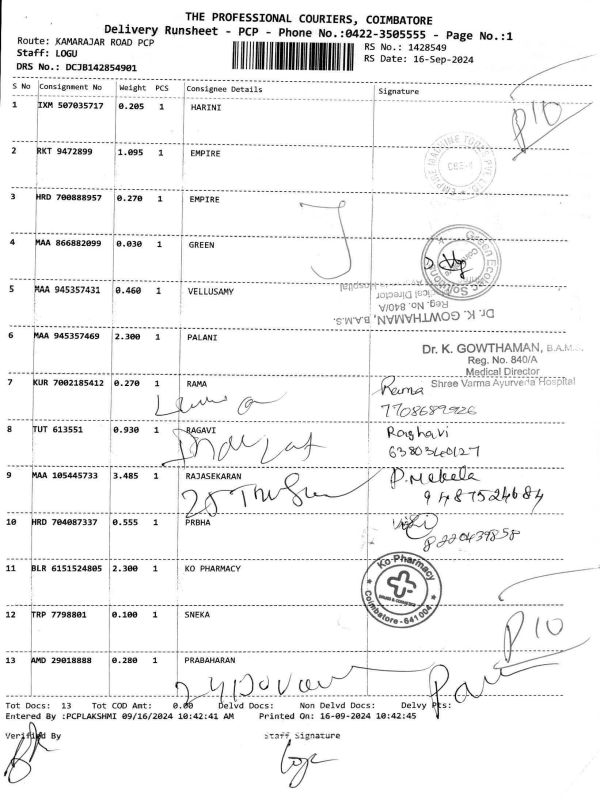 THE PROFESSIONAL COURIERS, COIMBATORE
Delivery Runsheet - PCP - Phone No.:0422-3505555 - Page No.:1
Route: KAMARAJAR ROAD PCP
RS No.: 1428549
Staff: LOGU
RS Date: 16-Sep-2024
DRS No.: DCJB142854901
S No Consignment No Weight PCS Consignee Details Signature
1 IXM 507035717 0.205 1 HARINI
P10
2 RKT 9472899 1.095 1 EMPIRE
3 HRD 700888957 0.270 1 EMPIRE
4 MAA 866882099 0.030 1 GREEN
5 MAA 945357431 0.460 1 VELLUSAMY
Dr. K. GOWTHAMAN, B.A.M.S.
Reg. No. 840/A
Medical Director
6 MAA 945357469 2.300 1 PALANI
Dr. K. GOWTHAMAN, B.A.M.S.
Reg. No. 840/A
Medical Director
Shree Varma Ayurveda Hospital
7 KUR 7002185412 0.270 1 RAMA
Rama
8 TUT 613551 0.930 1 RAGAVI
Raghavi
9 MAA 105445733 3.485 1 RAJASEKARAN
P.Mekala
9487524684
10 HRD 704087337 0.555 1 PRBHA
8220439858
11 BLR 6151524805 2.300 1 KO PHARMACY
Ko Pharmacy
Coimbatore - 641 004
12 TRP 7798801 0.100 1 SNEKA
P10
13 AMD 29018888 0.280 1 PRABAHARAN
Tot Docs: 13 Tot COD Amt: 0.00 Delvd Docs: Non Delvd Docs: Delvy Pts:
Entered By :PCPLAKSHMI 09/16/2024 10:42:41 AM Printed On: 16-09-2024 10:42:45
Verified By Staff Signature